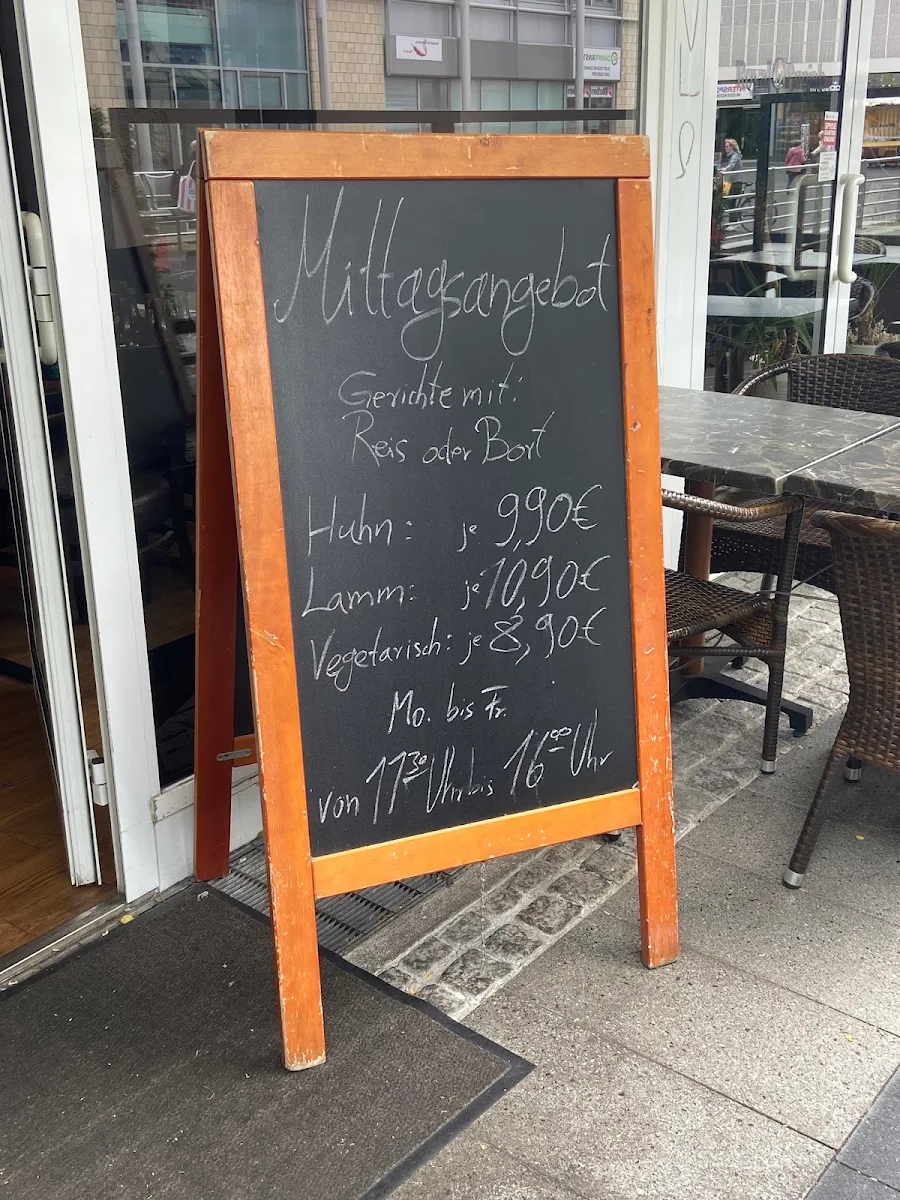 Mittagsangebot
Gerichte mit:
Reis oder Bort
Huhn: je 9,90€
Lamm: je 10,90€
Vegetarisch: je 8,90€
Mo. bis Fr.
von 11³⁰ Uhr bis 16⁰⁰ Uhr